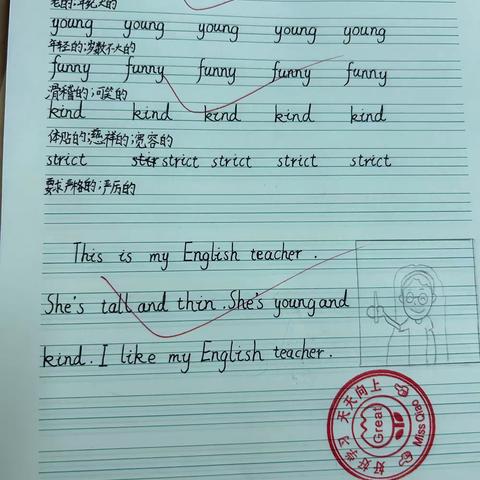 老的;年纪大的
young young young young young
年轻的;岁数不大的
funny funny funny funny funny
滑稽的;可笑的
kind kind kind kind kind
体贴的;慈祥的;宽容的
strict strict strict strict strict
要求严格的;严厉的
This is my English teacher.
She's tall and thin. She's young and
kind. I like my English teacher.
好好学习 天天向上
Great
Miss Qiao